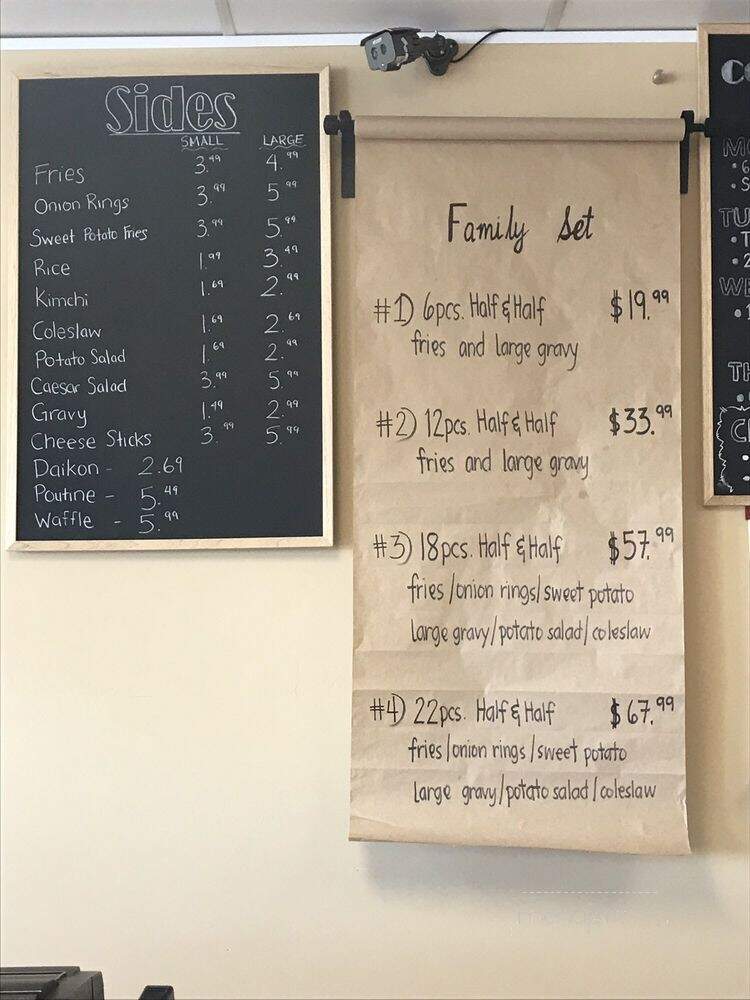 Sides
SMALL LARGE
Fries 3.49 4.99
Onion Rings 3.99 5.99
Sweet Potato Fries 3.99 5.99
Rice 1.99 3.49
Kimchi 1.69 2.99
Coleslaw 1.69 2.69
Potato Salad 1.69 2.99
Caesar Salad 3.99 5.99
Gravy 1.49 2.99
Cheese Sticks 3.99 5.99
Daikon - 2.69
Poutine - 5.49
Waffle - 5.99
Family Set
#1) 6pcs. Half & Half $19.99
fries and large gravy
#2) 12pcs. Half & Half $33.99
fries and large gravy
#3) 18pcs. Half & Half $57.99
fries/onion rings/sweet potato
large gravy/potato salad/coleslaw
#4) 22pcs. Half & Half $67.99
fries/onion rings/sweet potato
large gravy/potato salad/coleslaw